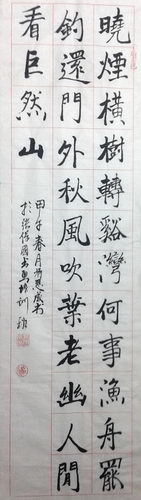 曉煙橫樹轉谿灣何事漁舟罷
釣還門外秋風吹葉老幽人閒
看巨然山
甲午春月